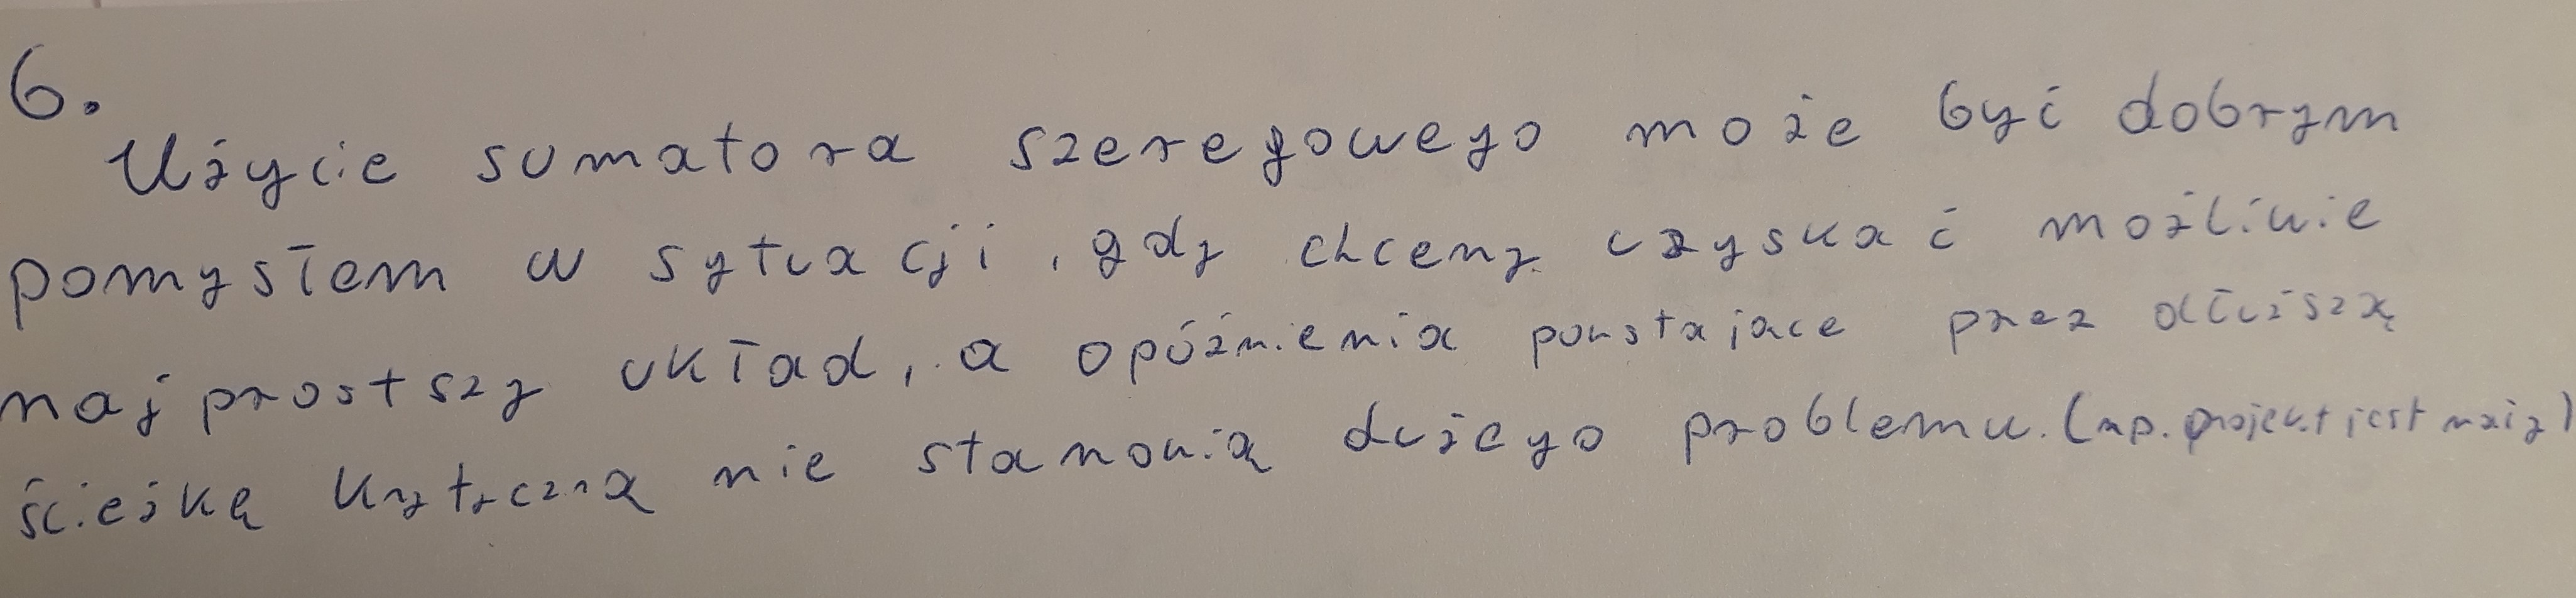 6.
Użycie sumatora szeregowego może być dobrym
pomysłem w sytuacji, gdy chcemy uzyskać możliwie
najprostszy układ, a opóźnienia powstające przez dłuższą
ścieżkę krytyczną nie stanowią dużego problemu. (np. projekt jest mały)